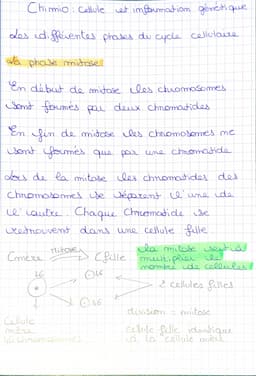 Chimio : cellule et information génétique
Les différentes phases du cycle cellulaire
La phase mitose
En début de mitose les chromosomes
sont formés par deux chromatides
En fin de mitose les chromosomes ne
sont formés que par une chromatide
Lors de la mitose les chromatides des
chromosomes se séparent l'une de
l'autre. Chaque chromatide se
retrouvent dans une cellule fille
la mitose sert à
mitose
Cmère Cfille multiplier le
nombre de cellules !
46 46
2 cellules filles
46
division = mitose
Cellule
mère cellule fille identique
46 chromosomes à la cellule mère